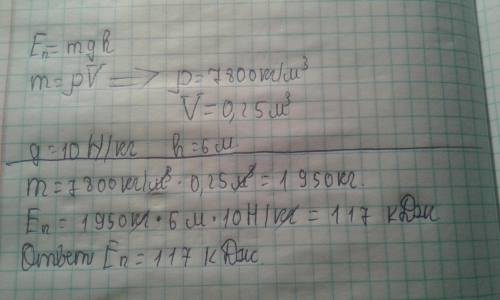 Eп = mgh
m = ρV => ρ = 7800 кг/м³
V = 0,25 м³
g = 10 Н/кг h = 6 м
m = 7800 кг/м³ · 0,25 м³ = 1950 кг.
Eп = 1950 кг · 6 м · 10 Н/кг = 117 кДж
Ответ Eп = 117 кДж.